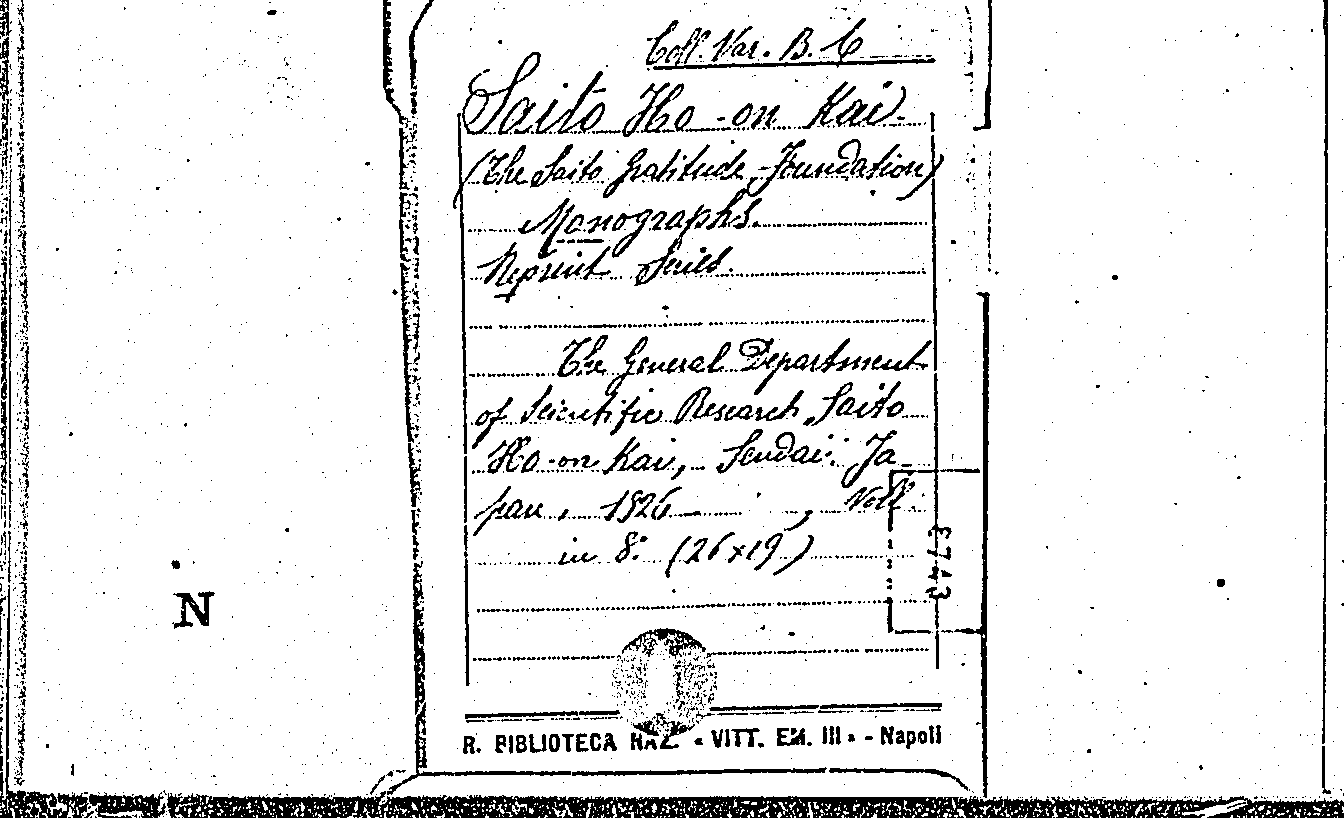 Coll. Var. B. 6
Saito Ho-on Kai.
(The Saito Gratitude-Foundation)
Monographs.
Reprint Series.
The General Department
of Scientific Research, Saito
Ho-on Kai, Sendai. Ja-
pan, 1926 , Voll.
in 8º (26x19)
3743
N
R. BIBLIOTECA NAZ. « VITT. EM. III » - Napoli